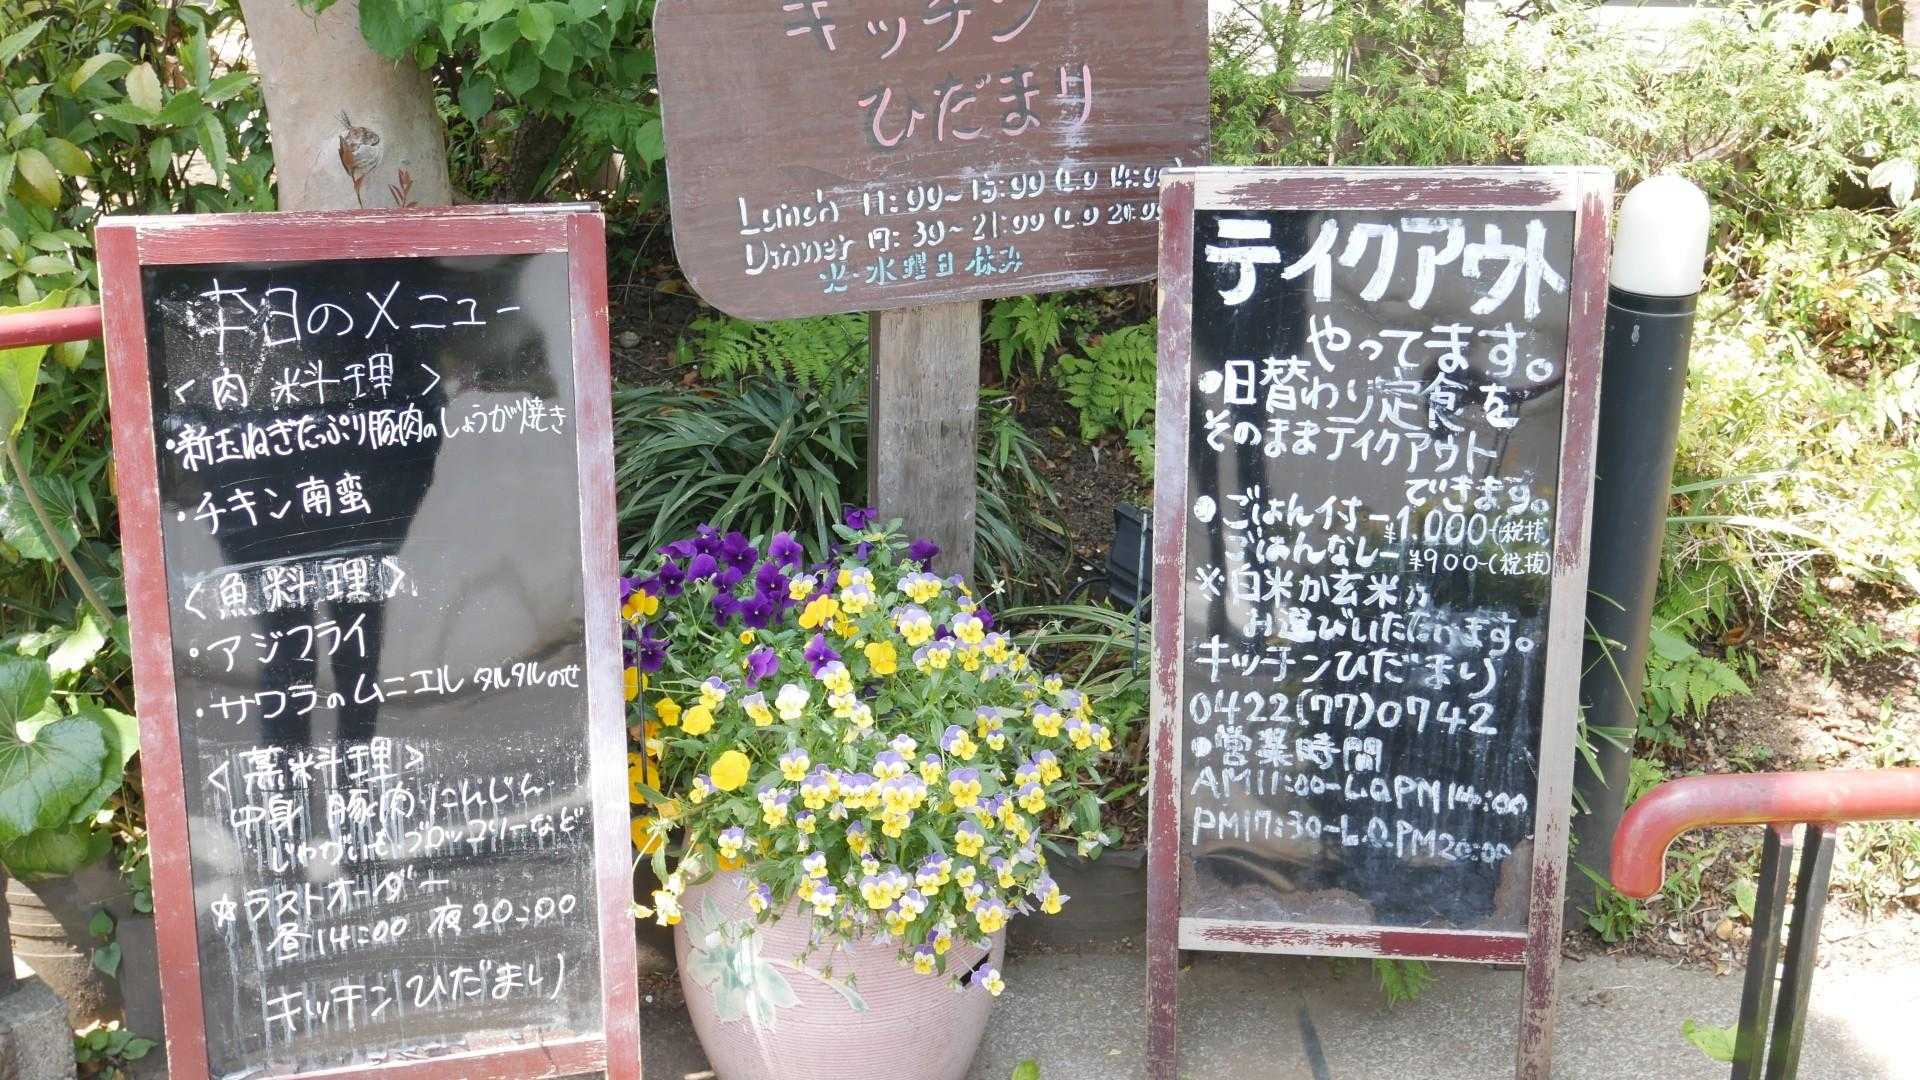 本日のメニュー
<肉料理>
・新玉ねぎたっぷり豚肉のしょうが焼き
・チキン南蛮
<魚料理>
・アジフライ
・サワラのムニエル タルタルのせ
<蒸料理>
中身 豚肉・にんじん
じゃがいも・ブロッコリーなど
☆ラストオーダー
昼14:00 夜20:00
キッチンひだまり
キッチン
ひだまり
Lunch 11:00~15:00 (L.O 14:00)
Dinner 17:30~21:00 (L.O 20:00
火・水曜日休み
テイクアウト
やってます。
・日替わり定食を
そのままテイクアウト
できます。
・ごはん付ー¥1.000-(税抜)
ごはんなしー¥900-(税抜)
※白米か玄米か
お選びいただけます。
キッチンひだまり
0422(77)0742
・営業時間
AM11:00-L.O PM14:00
PM17:30-L.O.PM20:00